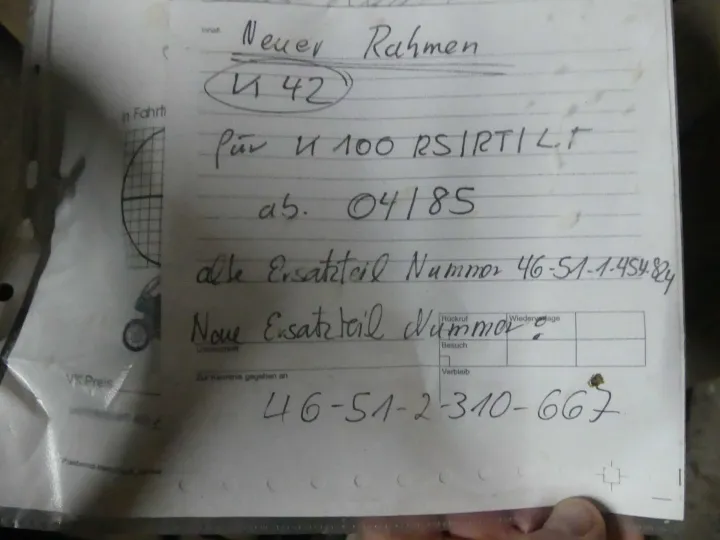 Inhalt
Neuer Rahmen
K 42
für K 100 RS/RT/LT
ab. 04/85
alte Ersatzteil Nummer 46-51-1-454.824
Neue Ersatzteil Nummer:
Rückruf
Wiedervorlage
Besuch
Verbleib
gegeben an
46-51-2-310-667
n Fahrt
VK Preis